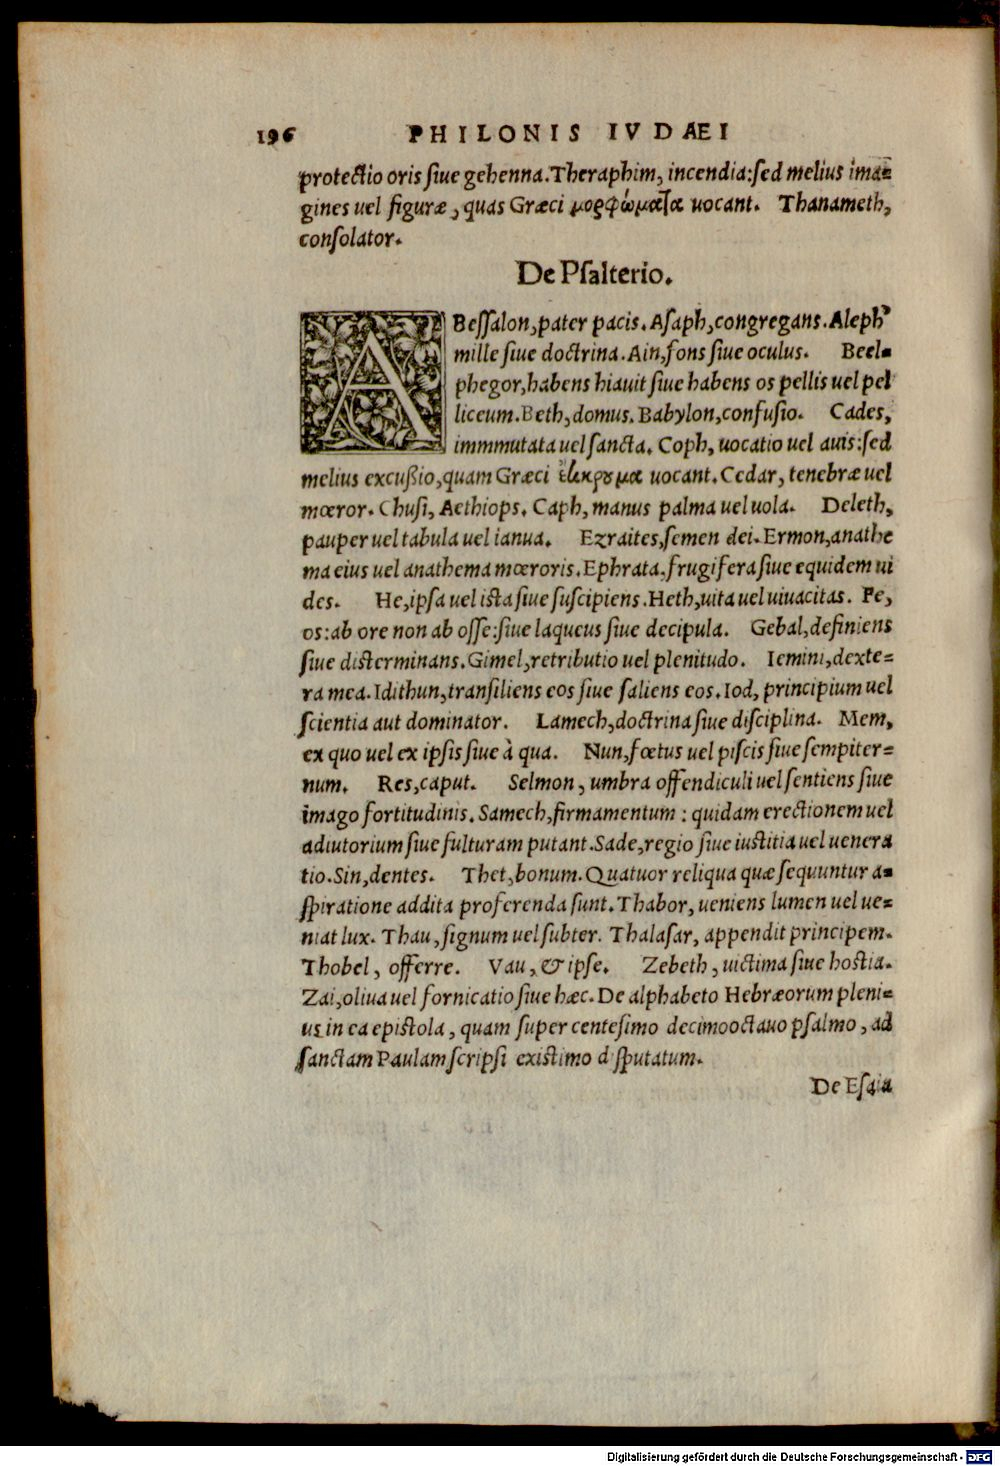 196 PHILONIS IVDAEI
protectio oris ſiue gehenna. Theraphim, incendia: ſed melius ima=
gines uel figuræ, quas Græci μορφώματα uocant. Thanameth,
conſolator.
De Pſalterio.
ABeſſalon, pater pacis. Aſaph, congregans. Aleph
mille ſiue doctrina. Ain, fons ſiue oculus. Beel=
phegor, habens hiauit ſiue habens os pellis uel pel
liceum. Beth, domus. Babylon, confuſio. Cades,
immmutata uel ſancta. Coph, uocatio uel auis: ſed
melius excußio, quam Græci uocant. Cedar, tenebræ uel
mœror. Chuſi, Aethiops. Caph, manus palma uel uola. Deleth,
pauper uel tabula uel ianua. Ezraites, ſemen dei. Ermon, anathe
ma eius uel anathema mœroris. Ephrata, frugifera ſiue equidem ui
des. He, ipſa uel iſta ſiue ſuſcipiens. Heth, uita uel uiuacitas. Fe,
os: ab ore non ab oſſe: ſiue laqueus ſiue decipula. Gebal, definiens
ſiue diſterminans. Gimel, retributio uel plenitudo. Iemini, dexte=
ra mea. Idithun, tranſiliens eos ſiue ſaliens eos. Iod, principium uel
ſcientia aut dominator. Lamech, doctrina ſiue diſciplina. Mem,
ex quo uel ex ipſis ſiue à qua. Nun, fœtus uel piſcis ſiue ſempiter=
num. Res, caput. Selmon, umbra offendiculi uel ſentiens ſiue
imago fortitudinis. Samech, firmamentum: quidam erectionem uel
adiutorium ſiue fulturam putant. Sade, regio ſiue iuſtitia uel uenera
tio. Sin, dentes. Thet, bonum. Quatuor reliqua quæ ſequuntur a=
ſpiratione addita proferenda ſunt. Thabor, ueniens lumen uel ue=
niat lux. Thau, ſignum uel ſubter. Thalaſar, appendit principem.
Thobel, offerre. Vau, & ipſe. Zebeth, uictima ſiue hoſtia.
Zai, oliua uel fornicatio ſiue hæc. De alphabeto Hebræorum pleni=
us in ea epiſtola, quam ſuper centeſimo decimooctauo pſalmo, ad
ſanctam Paulam ſcripſi exiſtimo diſputatum.
De Eſaia
Digitalisierung gefördert durch die Deutsche Forschungsgemeinschaft - DFG